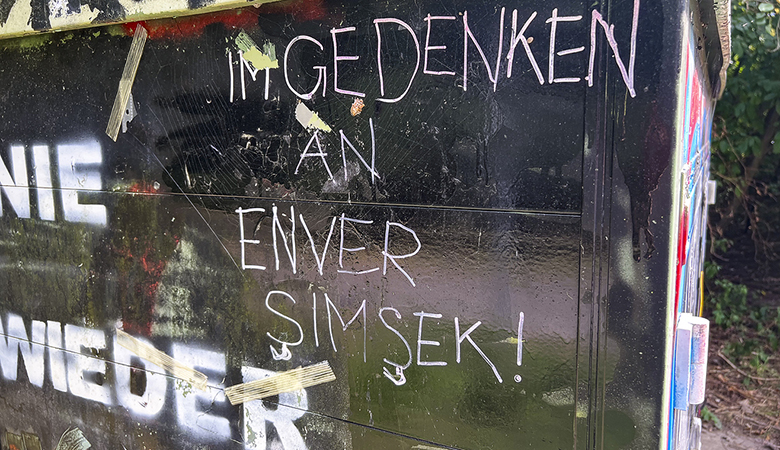 IM GEDENKEN
AN
ENVER
ŞIMŞEK!
NIE
WIEDER